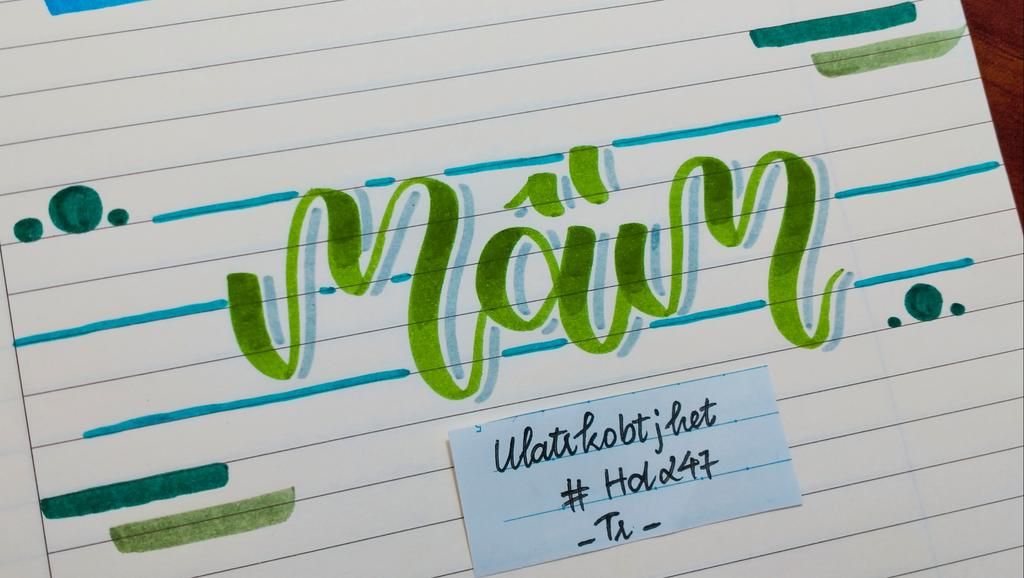 Mầm
Ulatikobtjhet
# Hd247
- Tr -